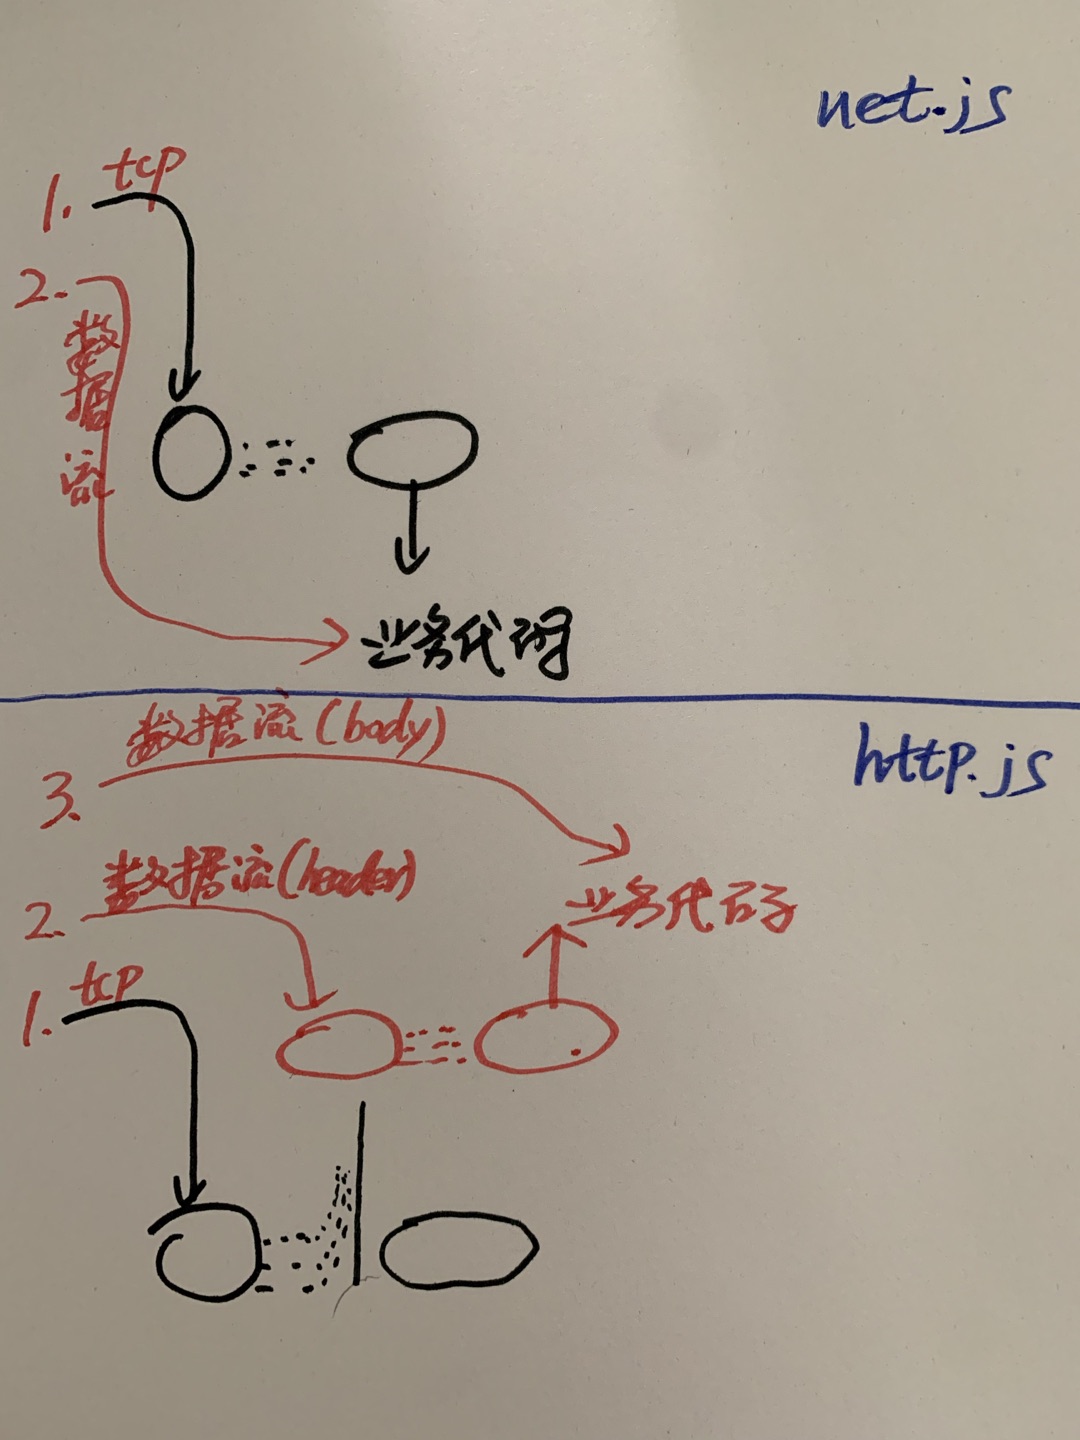 net.js
1. tcp
2. 数据流
业务代码
http.js
3. 数据流(body)
2. 数据流(header)
业务代码
1. tcp